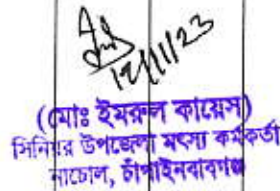 12/11/23
(মোঃ ইমরুল কায়েস)
সিনিয়র উপজেলা মৎস্য কর্মকর্তা
নাচোল, চাঁপাইনবাবগঞ্জ